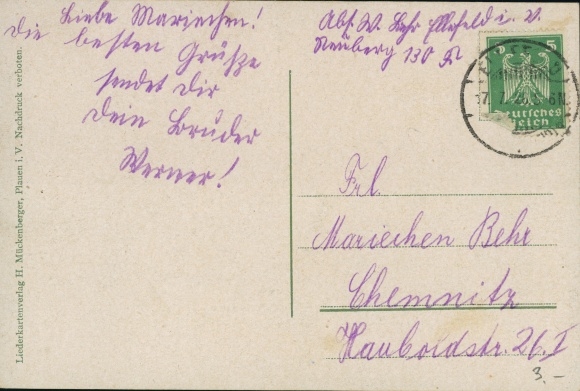 Liebe Mariechen!
die besten Grüße
sendet dir
dein Bruder
Werner!
Abs. W. Behr Ellefeld i. V.
Neuberg 130
5
Deutsches
Reich
Frl.
Mariechen Behr
Chemnitz
Hauboldstr. 26. I
3.-
Liederkartenverlag H. Mückenberger, Plauen i. V. Nachdruck verboten.